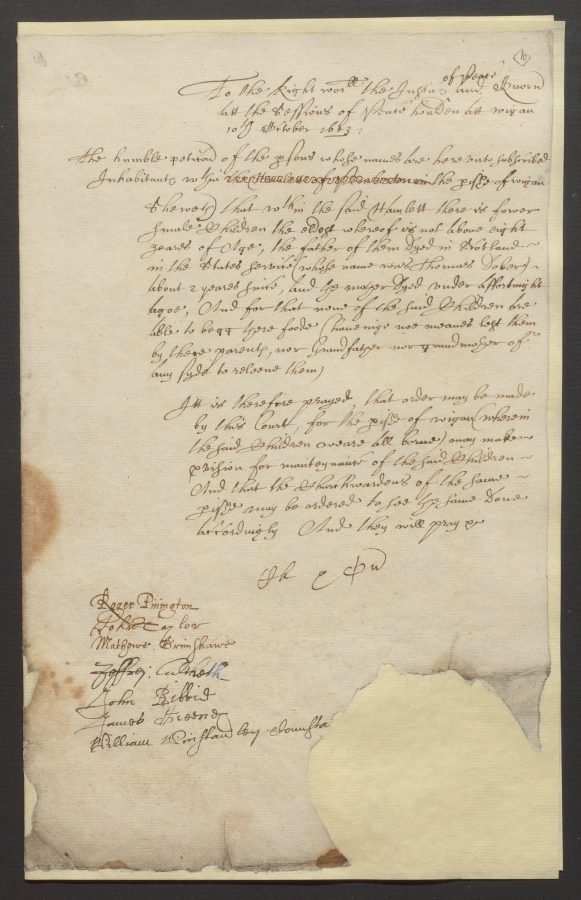 of Peace
To the Right worll the Justices and Sworne
att the Sessions of Peace houlden att wigan
10th October 1653:
The humble peticon of the psons whose names are here vnto subscribed
Inhabitants wthin the Hamlett of Pemberton in the pishe of wigan
Sheweth that wthin the said Hamlett there is fower
smale Children the eldest whereof is not above eight
yeares of Age, the father of them Dyed in Scotland
in the States service whose name was Thomas
about 2 yeares since, and the mother Dyed vnder a ffortnight
agoe, And for that none of the said Children are
able to begg there foode (haveinge noe meanes left them
by there parents, nor Grandfather nor grandmother of
any syde to releeve them)
Itt is therefore prayed, that order may be made
by this Court, for the pishe of wigan (wherein
the said Children weare all borne) may make
pvision for mantenance of the said Children
And that the Churchwardens of the same
pishe may be ordered to see the same Done
accordingly And they will pray
Roger Pinington
John Taylor
Mathewe Grimshawe
Jeffrey Culcheth
John Bibbie
James Greene
William Winstanley Consta